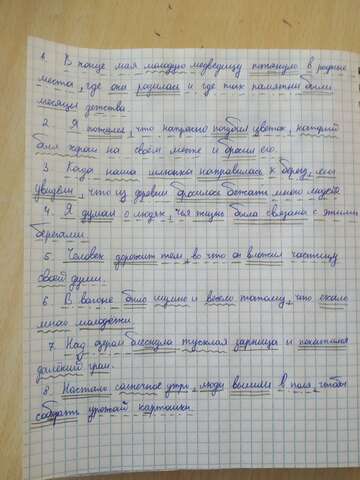 1. В конце мая молодую медведицу потянуло в родные
места, где она родилась и где так памятны были
месяцы детства.
2. Я пожалел, что напрасно погубил цветок, который
был хорош на своём месте и бросил его.
3. Когда наша шлюпка направилась к берегу, мы
увидели, что из деревни бросилось бежать много людей.
4. Я думал о людях, чья жизнь была связана с этими
берегами.
5. Человек дорожит тем, во что он вложил частицу
своей души.
6. В вагоне было шумно и весело потому, что ехало
много молодёжи.
7. Над озером блеснула тусклая зарница и покатился
далёкий гром.
8. Настало солнечное утро, люди вышли в поля, чтобы
собирать урожай картошки.